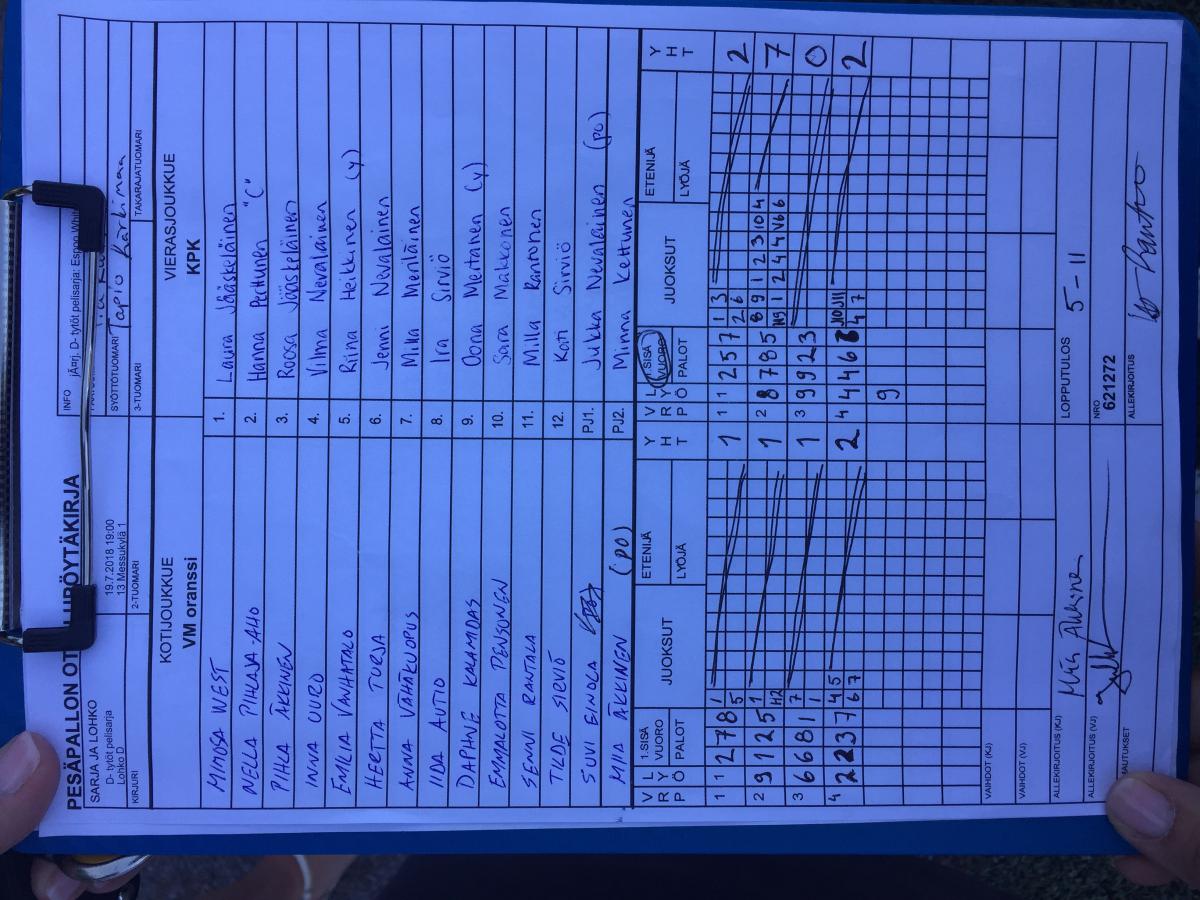 PESÄPALLON OT LUPÖYTÄKIRJA
SARJA JA LOHKO
D- tytöt pelisarja
Lohko D
19.7.2018 19:00
13 Messukylä 1
INFO jÄ¤rj. D- tytöt pelisarja: Espoo
SYÖTTÖTUOMARI Tapio Kärkimaa
KIRJURI 2-TUOMARI 3-TUOMARI TAKARAJATUOMARI
KOTIJOUKKUE VIERASJOUKKUE
VM oranssi KPK
MIMOSA WEST 1. Laura Jääskeläinen
NELLA PIHLAJA-AHO 2. Hanna Perttunen "C"
PIHLA ÄKKINEN 3. Roosa Jääskeläinen
INNA OURO 4. Vilma Nevalainen
EMILIA VANHATALO 5. Riina Heikkinen (y)
HERTTA TORJA 6. Jenni Nevalainen
ANNA VÄHÄKUOPUS 7. Milla Meriläinen
IIDA AUTIO 8. Ira Sirviö
DAPHNE KALAMIDAS 9. Oona Mertanen (y)
EMMALOTTA PENSONEN 10. Sara Makkonen
SENNI RANTALA 11. Milla Rantonen
TILDE SIRVIÖ 12. Kati Sirviö
SUVI EINOLA PJ1. Jukka Nevalainen (po)
MIIA ÄKKINEN (po) PJ2. Minna Kettunen
VRP LYÖ 1.SISÄ VUORO PALOT JUOKSUT ETENIJÄ LYÖJÄ YHT VRP LYÖ 1.SISÄ VUORO PALOT JUOKSUT ETENIJÄ LYÖJÄ YHT
1 1 2 7 8 1 1 1 1 2 5 7 1 3 2
5 2 6
2 9 1 2 5 1 1 2 8 7 8 5 8 9 1 2 3 10 4 7
H2 N9 1 2 4 4 V6 6
3 6 6 8 1 7 1 3 9 9 2 3 0
1
4 2 2 3 7 4 5 2 4 4 4 6 8 J10 J11 2
6 7 4 7
9
VAIHDOT (KJ)
VAIHDOT (VJ)
ALLEKIRJOITUS (KJ) LOPPUTULOS 5 - 11
ALLEKIRJOITUS (VJ) NRO 621272
HAUTUKSET ALLEKIRJOITUS